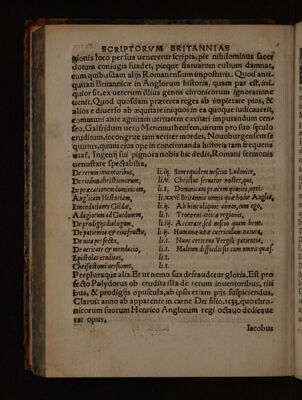 SCRIPTORUM BRITANNIAE
gionis loco per sua veneretur scripta, pie nihilominus sacer
dotum coniugia suadet, pieque statuarum cultum damnat,
cum quibusdam alijs Romanensium imposturis. Quod anti-
quitati Britannicæ in Anglorum historia, quam par est, ini-
quior sit, ex veterum illius gentis chronicorum ignoratione
uenit. Quod quosdam præterea reges ab impietate pios, &
alios e diuerso ab æquitate iniquos quoque iudicauerit,
communi ante agnitam ueritatem cæcitati imputandum cen-
seo. Galfridum uero Menemuthensem, uirum pro suo sęculo
eruditum, incongrue tam
quitus, quàm eius ope in concinnanda historia tam frequens
utar, Ingenij sui pignora nobis hic dedit, Romani sermonis
uenustate spectabilia,
De rerum inuentoribus, li.iij. Suo equidem
De ritibus christianorum, li.v. Christus seruator noster, qui,
In precationem dominicam, li.i. Dominicam precem
Anglicam Historiam, li.xxvi Britannia omnis quæ hodie Anglia,
Emendationes Gildæ, li.i. Ab hinc aliquot annos, cum ego,
Adagiorum ad Guidonem, li.i.
De prodigijs dialogum, li.iij. Accurate sed
De patientia & eius fructu, li.ij. Humana
De uita perfecta, li.i. Nunc certemus Vergili patientia,
De ueritate & mendacio, li.i. Multum difficilis sit cum omni
Epistolas eruditas, li.i.
Chrisostomi uersiones, li.i.
Perpluraque alia. Et ut nemo sua defraudetur gloria. Est pro
fecto Polydorus ob erudita illa de rerum inuentoribus, riti
bus, & prodigijs opuscula, ab ipsis etiam pijs suspiciendus.
Claruit anno ab apparente in carne Dei filio. 1533, quo chro-
nicorum suorum Henrico Anglorum regi octauo dedicaue
rat opus.
Iacobus